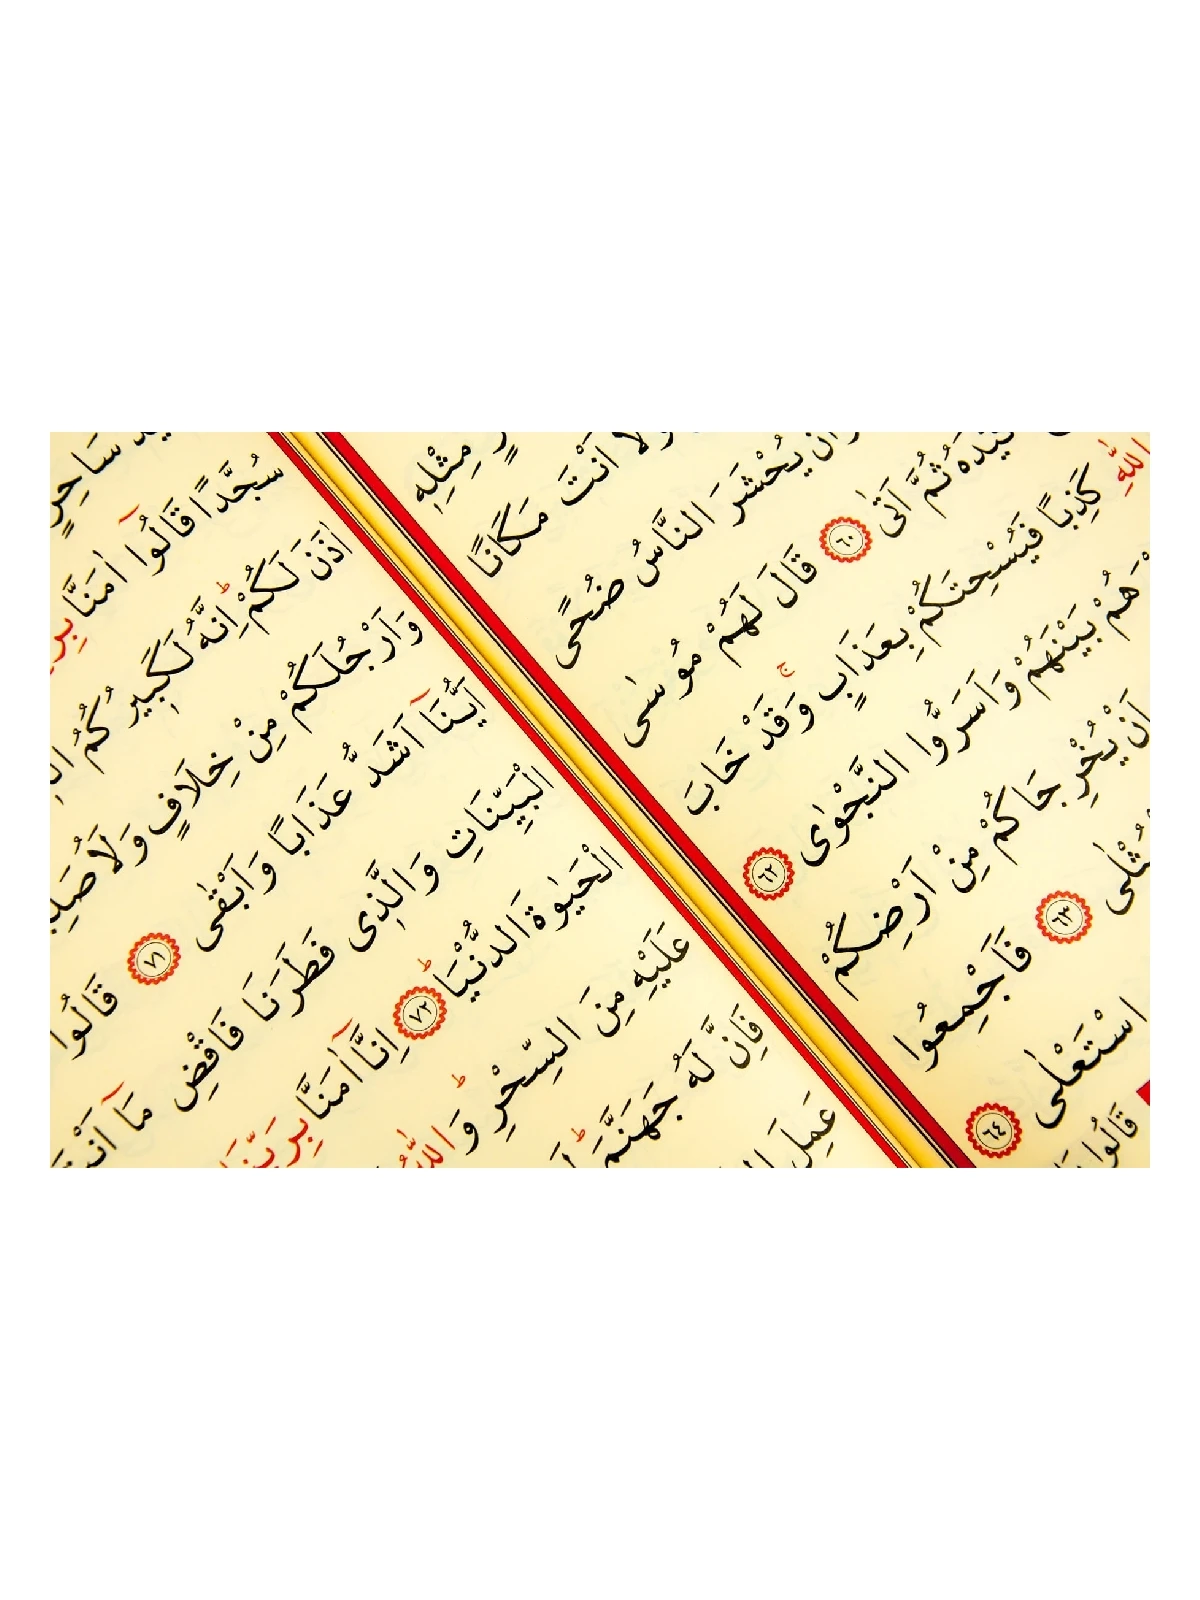 مِثْلِهٖ
وَلَٓا اَنْتَ مَكَانًا
وَاَنْ يُحْشَرَ النَّاسُ ضُحًى
كَيْدَهُ ثُمَّ اَتٰى ﴿٦٠﴾ قَالَ لَهُمْ مُوسٰى
اللّٰهِ كَذِبًا فَيُسْحِتَكُمْ بِعَذَابٍۚ وَقَدْ خَابَ
هُمْ بَيْنَهُمْ وَاَسَرُّوا النَّجْوٰى ﴿٦٢﴾
اَنْ يُخْرِجَاكُمْ مِنْ اَرْضِكُمْ
﴿٦٣﴾ فَاَجْمِعُوا
اسْتَعْلٰى ﴿٦٤﴾
قَالُوا
سَاحِرٍ
سُجَّدًا قَالُٓوا اٰمَنَّا
اٰذَنَ لَكُمْۜ اِنَّهُ لَكَبِيرُكُمُ
وَاَرْجُلَكُمْ مِنْ خِلَافٍ
اَيُّنَٓا اَشَدُّ عَذَابًا وَاَبْقٰى ﴿٧١﴾ قَالُوا
الْبَيِّنَاتِ وَالَّذِى فَطَرَنَا فَاقْضِ مَٓا اَنْتَ
الْحَيٰوةَ الدُّنْيَاۜ ﴿٧٢﴾ اِنَّٓا اٰمَنَّا بِرَبِّنَا
عَلَيْهِ مِنَ السِّحْرِۜ وَاللّٰهُ
فَاِنَّ لَهُ جَهَنَّمَۜ
عَمِلَ